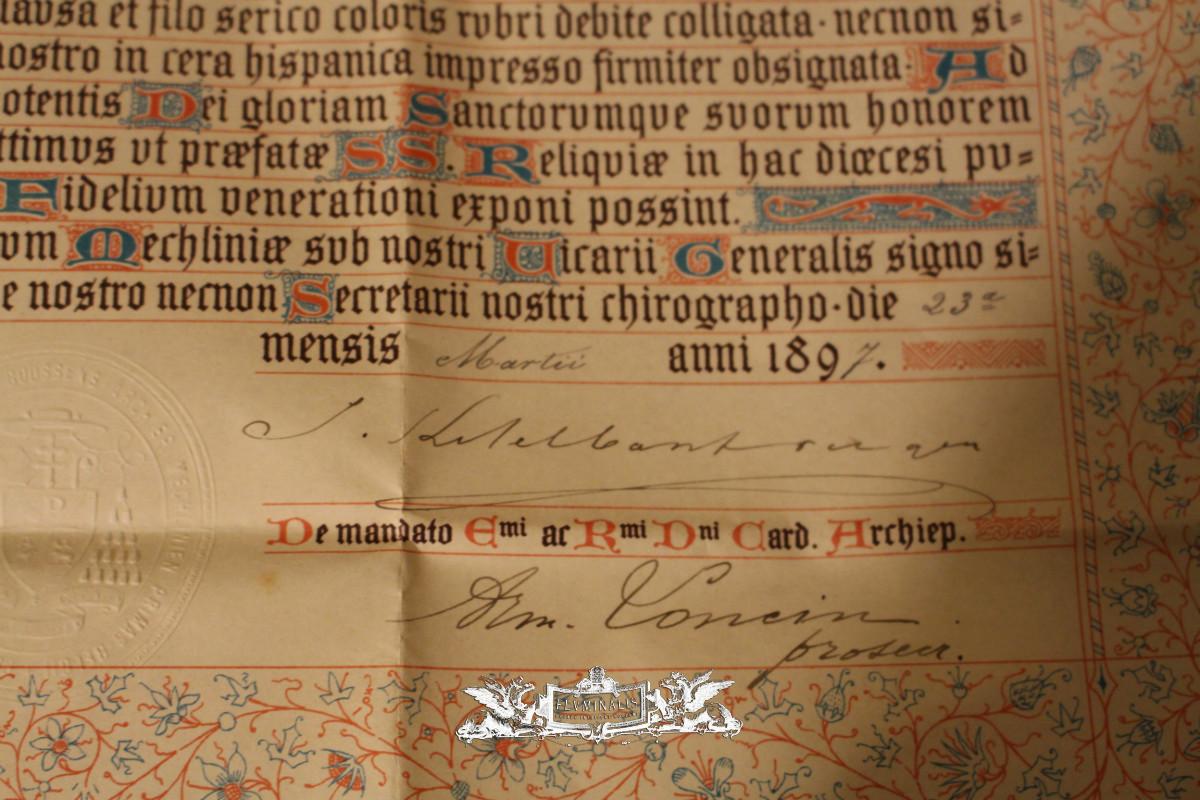 clausa et filo serico coloris rubri debite colligata · necnon si=
nostro in cera hispanica impresso firmiter obsignata · Ad
otentis Dei gloriam Sanctorumque suorum honorem
ttimus ut præfatæ SS. Reliquiæ in hac diœcesi pu=
Fidelium venerationi exponi possint.
um Mechliniæ sub nostri Vicarii Generalis signo si=
e nostro necnon Secretarii nostri chirographo · die 23ª
mensis Martii anni 1897.
GOOSSENS ARCH EP MECHLINIEN PRIMAS BELGII
J.
De mandato Emi ac Rmi Dni Card. Archiep.
Arm. Concin
prosecr.
ELUMINALIS